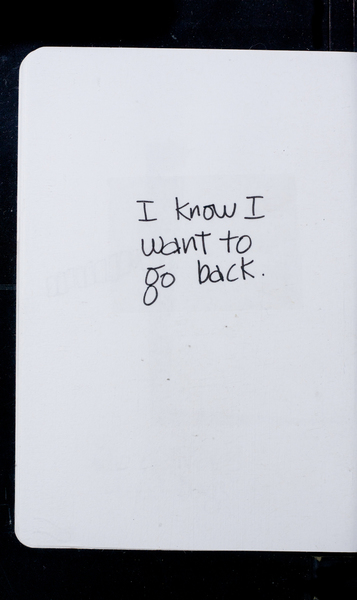 I know I
want to
go back.